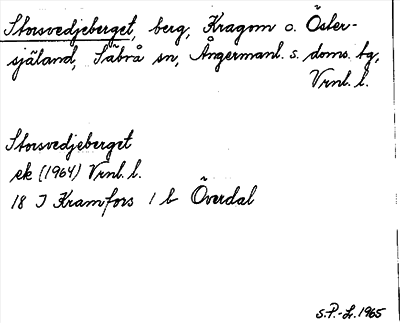 Storsvedjeberget, berg, Kragom o. Öster-
själand, Säbrå sn, Ångermanl. s. doms. tg,
Vrnl. l.
Storsvedjeberget
ek (1964) Vrnl. l.
18 I Kramfors 1 b Överdal
S.P.-L. 1965